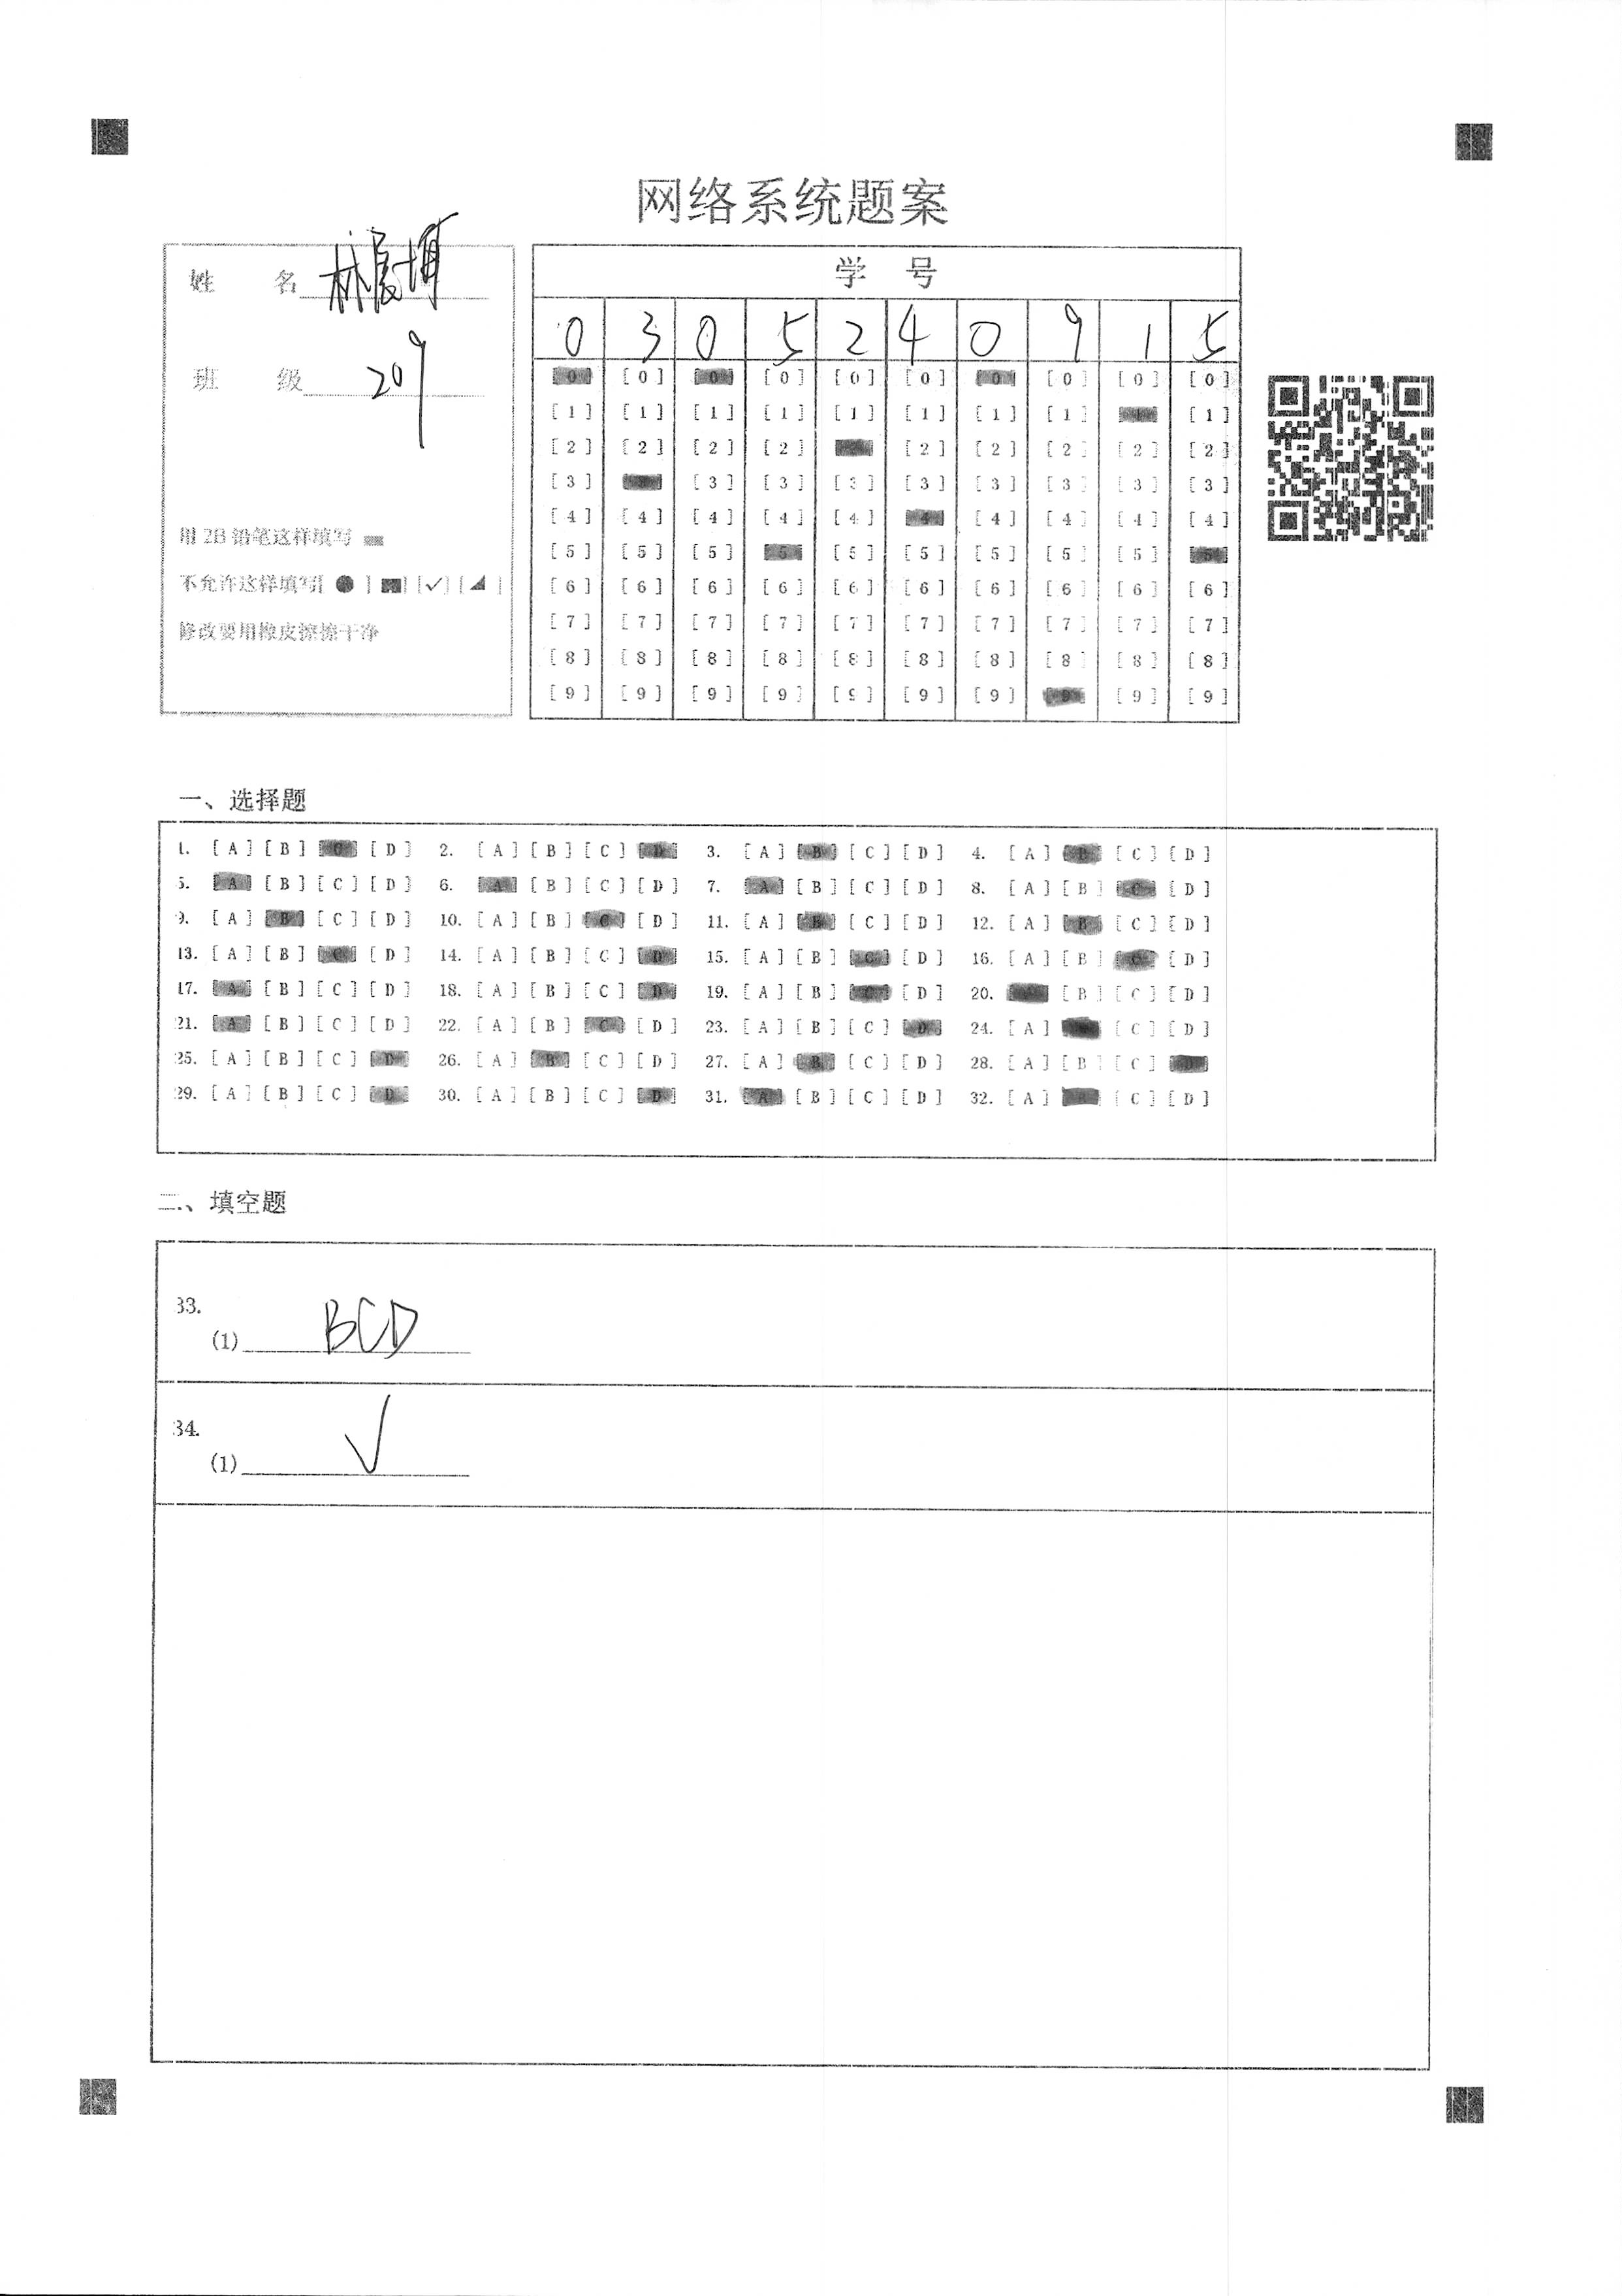 网络系统题案
姓 名 林
班 级 209
用 2B 铅笔这样填写
不允许这样填写[ ● ] [ ] [✓] [ ]
修改要用橡皮擦擦干净
学 号
0 3 0 5 2 4 0 9 1 5
[0] [0] [0] [0] [0] [0] [0] [0] [0] [0]
[1] [1] [1] [1] [1] [1] [1] [1] [1] [1]
[2] [2] [2] [2] [2] [2] [2] [2] [2] [2]
[3] [3] [3] [3] [3] [3] [3] [3] [3] [3]
[4] [4] [4] [4] [4] [4] [4] [4] [4] [4]
[5] [5] [5] [5] [5] [5] [5] [5] [5] [5]
[6] [6] [6] [6] [6] [6] [6] [6] [6] [6]
[7] [7] [7] [7] [7] [7] [7] [7] [7] [7]
[8] [8] [8] [8] [8] [8] [8] [8] [8] [8]
[9] [9] [9] [9] [9] [9] [9] [9] [9] [9]
一、选择题
1. [A] [B] [C] [D] 2. [A] [B] [C] [D] 3. [A] [B] [C] [D] 4. [A] [B] [C] [D]
5. [A] [B] [C] [D] 6. [A] [B] [C] [D] 7. [A] [B] [C] [D] 8. [A] [B] [C] [D]
9. [A] [B] [C] [D] 10. [A] [B] [C] [D] 11. [A] [B] [C] [D] 12. [A] [B] [C] [D]
13. [A] [B] [C] [D] 14. [A] [B] [C] [D] 15. [A] [B] [C] [D] 16. [A] [B] [C] [D]
17. [A] [B] [C] [D] 18. [A] [B] [C] [D] 19. [A] [B] [C] [D] 20. [A] [B] [C] [D]
21. [A] [B] [C] [D] 22. [A] [B] [C] [D] 23. [A] [B] [C] [D] 24. [A] [B] [C] [D]
25. [A] [B] [C] [D] 26. [A] [B] [C] [D] 27. [A] [B] [C] [D] 28. [A] [B] [C] [D]
29. [A] [B] [C] [D] 30. [A] [B] [C] [D] 31. [A] [B] [C] [D] 32. [A] [B] [C] [D]
二、填空题
33.
(1) BCD
34.
(1) √